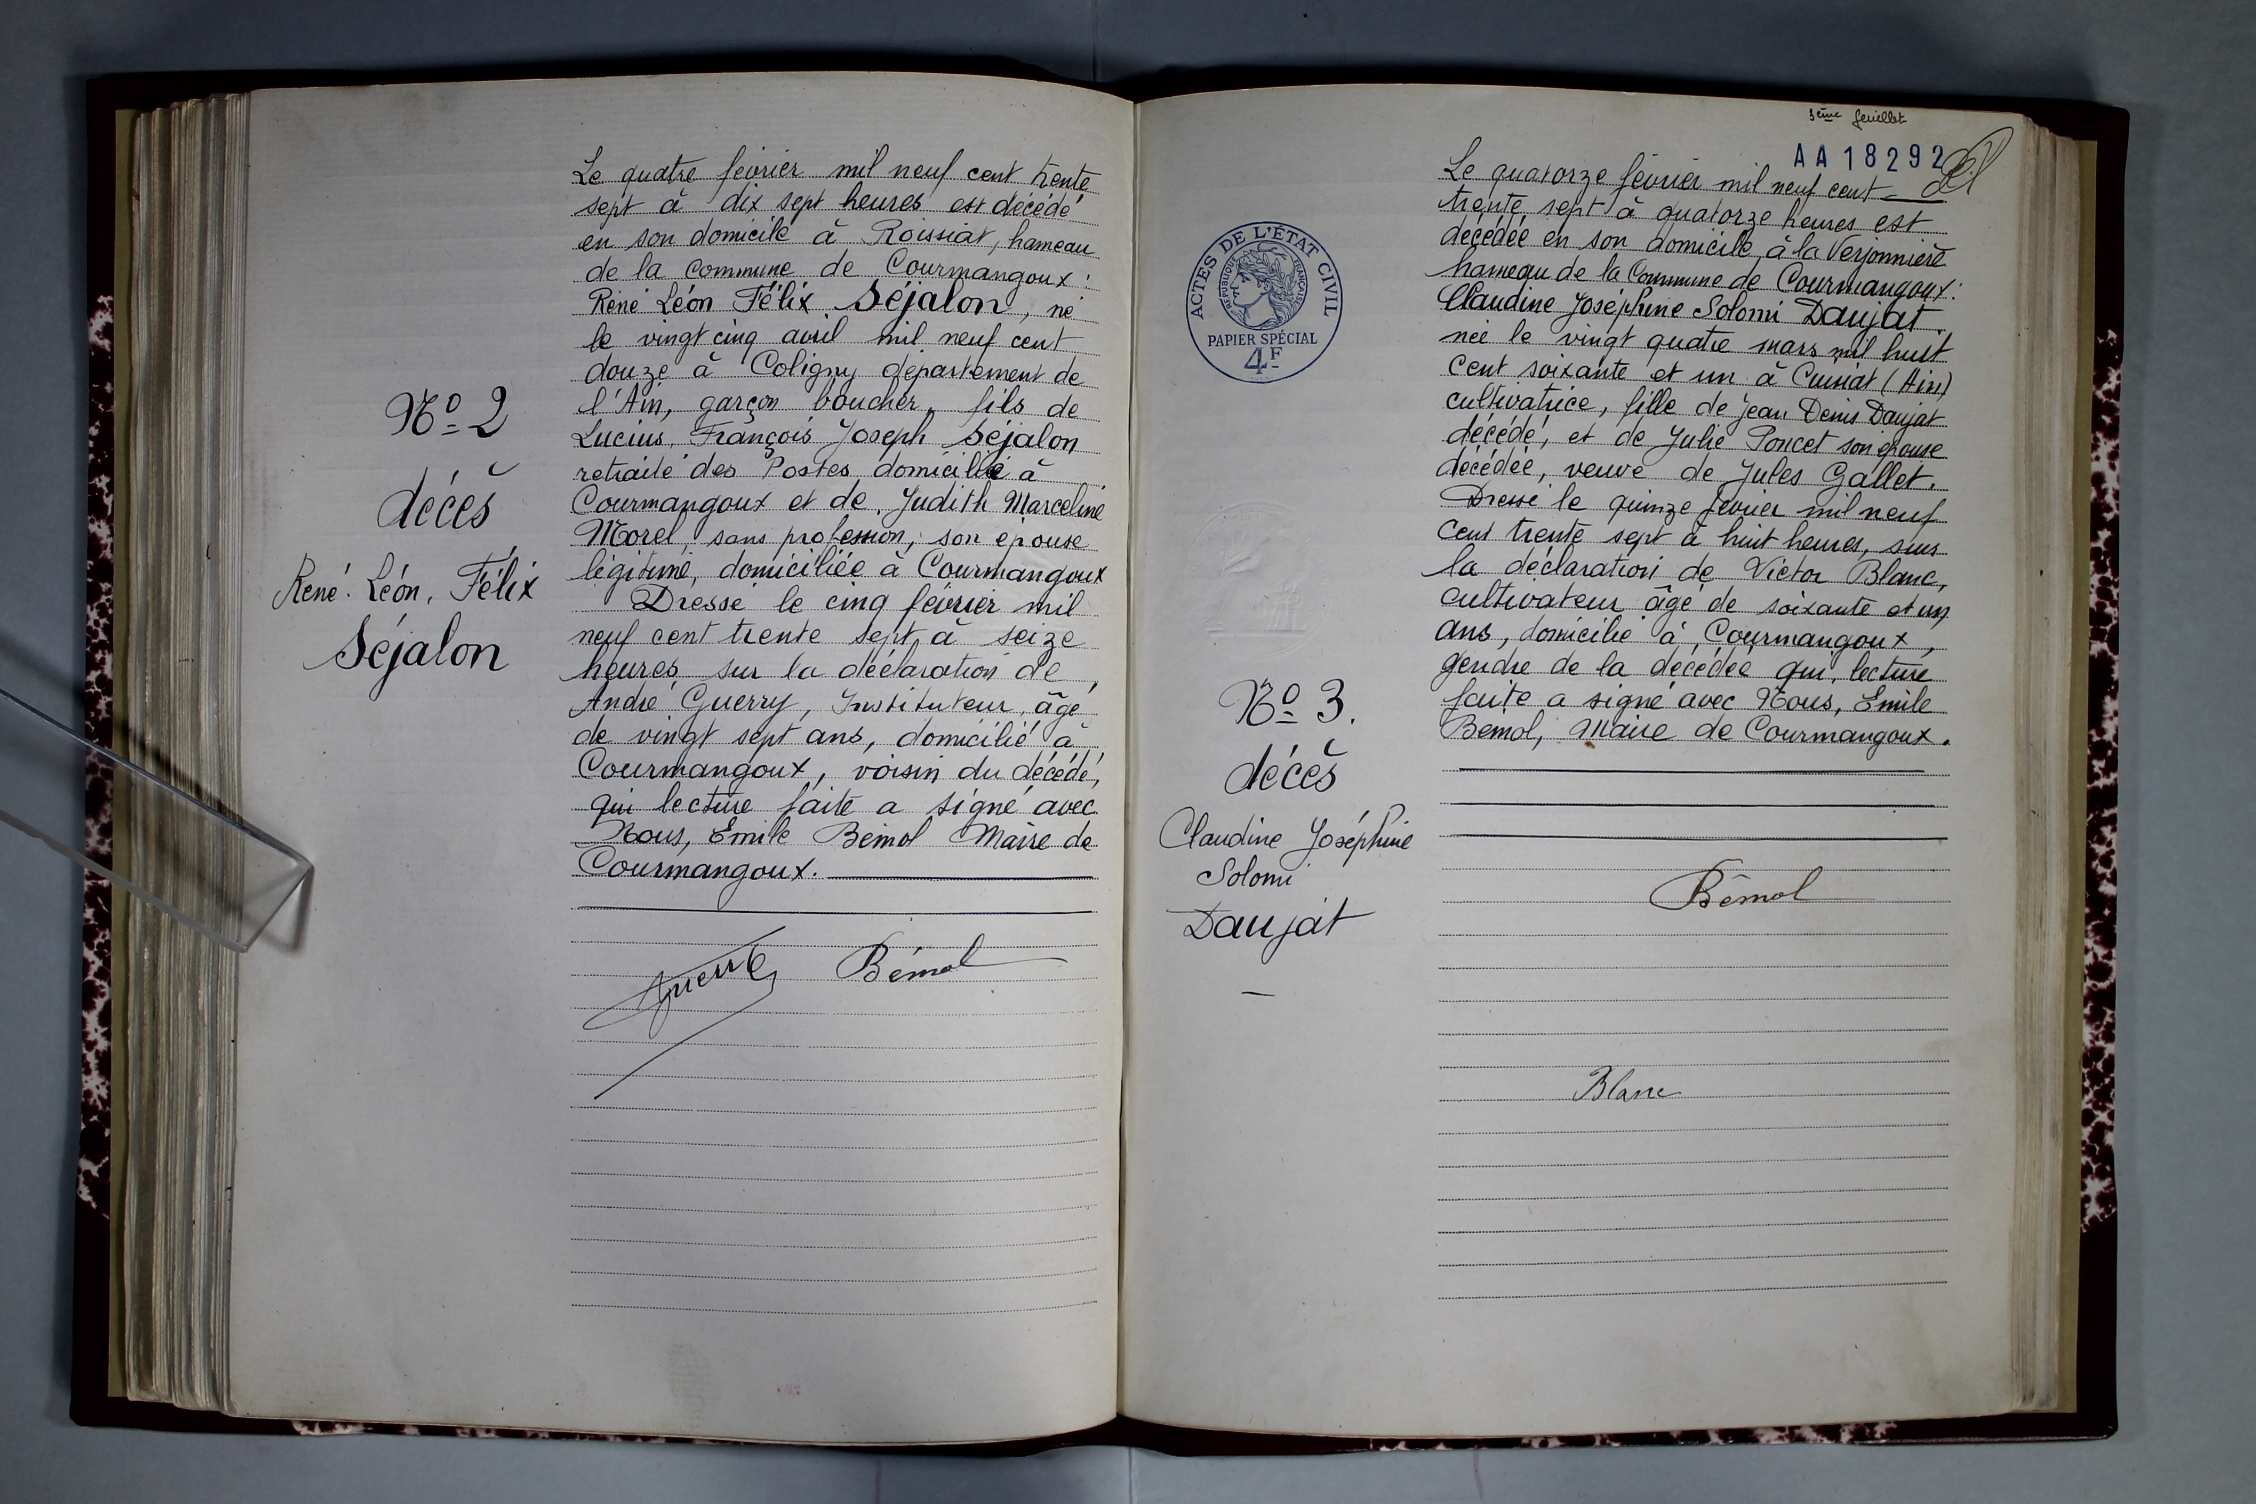 Nº 2
décès
René. Léon. Félix
Séjalon
Le quatre février mil neuf cent trente
sept à dix sept heures est décédé
en son domicile à Roissiat, hameau
de la commune de Courmangoux :
René Léon Félix Séjalon, né
le vingt cinq avril mil neuf cent
douze à Coligny département de
l'Ain, garçon boucher, fils de
Lucius, François Joseph Séjalon
retraité des Postes domicilié à
Courmangoux et de Judith Marceline
Morel, sans profession, son épouse
légitime, domiciliée à Courmangoux
Dressé le cinq février mil
neuf cent trente sept à seize
heures, sur la déclaration de
André Guerry, Instituteur, âgé
de vingt sept ans, domicilié à
Courmangoux, voisin du décédé,
qui lecture faite a signé avec
Nous, Emile Bémol Maire de
Courmangoux.
Guerry Bémol
3ème feuillet
AA18292
ACTES DE L'ÉTAT CIVIL
RÉPUBLIQUE FRANÇAISE
PAPIER SPÉCIAL
4F
Nº 3.
décès
Claudine Joséphine
Solomi
Daujat
Le quatorze février mil neuf cent
trente sept à quatorze heures est
décédée en son domicile, à la Verjonnière
hameau de la Commune de Courmangoux :
Claudine Joséphine Solomi Daujat.
née le vingt quatre mars mil huit
cent soixante et un à Cuisiat (Ain)
cultivatrice, fille de Jean Denis Daujat
décédé, et de Julie Poncet son épouse
décédée, veuve de Jules Gallet.
Dressé le quinze février mil neuf
cent trente sept à huit heures, sur
la déclaration de Victor Blanc,
cultivateur âgé de soixante et un
ans, domicilié à Courmangoux,
gendre de la décédée qui, lecture
faite a signé avec Nous, Emile
Bémol, Maire de Courmangoux.
Bémol
Blanc